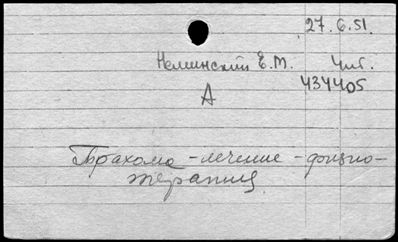 27.6.51.
Немшинский Е.М. Чит.
434405
А
Трахома - лечение - физио-
терапия